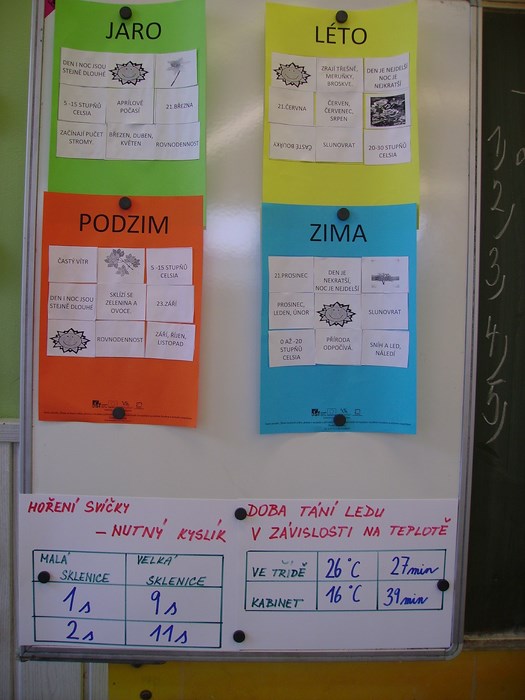 JARO
DEN I NOC JSOU
STEJNĚ DLOUHÉ
5 -15 STUPŇŮ
CELSIA
APRÍLOVÉ
POČASÍ
21.BŘEZNA
ZAČÍNAJÍ PUČET
STROMY.
BŘEZEN, DUBEN,
KVĚTEN
ROVNODENNOST
LÉTO
ZRAJÍ TŘEŠNĚ,
MERUŇKY,
BROSKVE.
DEN JE NEJDELŠÍ
NOC JE
NEJKRATŠÍ
21.ČERVNA
ČERVEN,
ČERVENEC,
SRPEN
ČASTÉ BOUŘKY
SLUNOVRAT
20-30 STUPŇŮ
CELSIA
PODZIM
ČASTÝ VÍTR
5 -15 STUPŇŮ
CELSIA
DEN I NOC JSOU
STEJNĚ DLOUHÉ
SKLÍZÍ SE
ZELENINA A
OVOCE.
23.ZÁŘÍ
ROVNODENNOST
ZÁŘÍ, ŘÍJEN,
LISTOPAD
ZIMA
21.PROSINEC
DEN JE
NEKRATŠÍ,
NOC JE NEJDELŠÍ
PROSINEC,
LEDEN, ÚNOR
SLUNOVRAT
0 AŽ -20
STUPŇŮ
CELSIA
PŘÍRODA
ODPOČÍVÁ.
SNÍH A LED,
NÁLEDÍ
HOŘENÍ SVÍČKY
– NUTNÝ KYSLÍK
MALÁ
SKLENICE
VELKÁ
SKLENICE
1s
9s
2s
11s
DOBA TÁNÍ LEDU
V ZÁVISLOSTI NA TEPLOTĚ
VE TŘÍDĚ 26°C 27min
KABINET 16°C 39min
1)
2)
3)
4)
5)